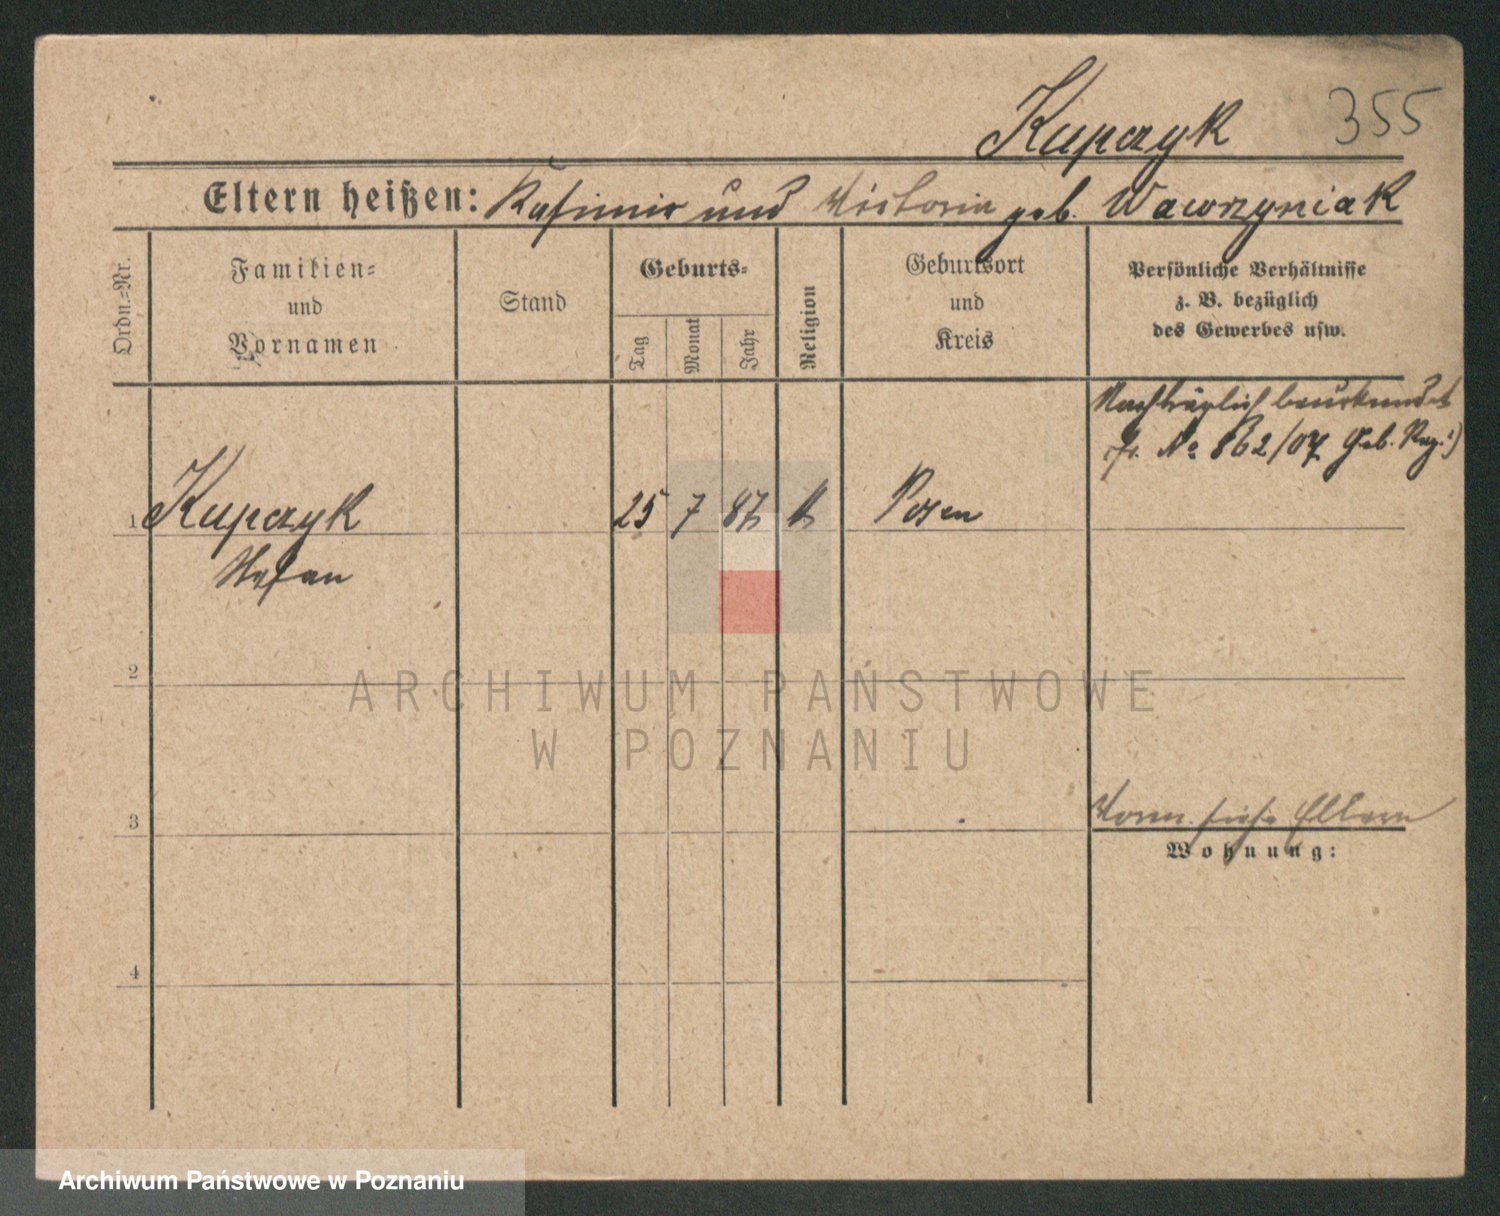 Kupczyk 355
Eltern heißen: Kasimir und Victoria geb. Wawrzyniak
Ordn.=Nr.
Familien=
und
Vornamen
Stand
Geburts=
Tag
Monat
Jahr
Religion
Geburtsort
und
Kreis
Persönliche Verhältnisse
z. B. bezüglich
des Gewerbes usw.
Nachträglich beurkundet
No 862/07 Geb. Reg.
1 Kupczyk 25 7 87 k Posen
Stefan
2
ARCHIWUM PAŃSTWOWE
W POZNANIU
3
siehe Eltern
Wohnung:
4
Archiwum Państwowe w Poznaniu